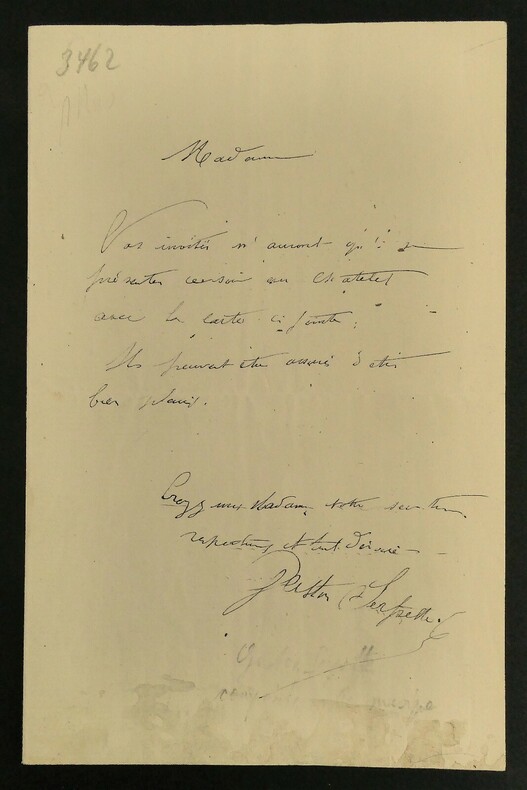 3462
Madame
Vos invités n'auront qu'à se
présenter ce soir au Châtelet
avec la carte ci jointe.
Ils peuvent être assurés d'être
bien placés.
Croyez moi Madame votre serviteur
respectueux et tout dévoué
Gaston Serpette
Gaston Serpette